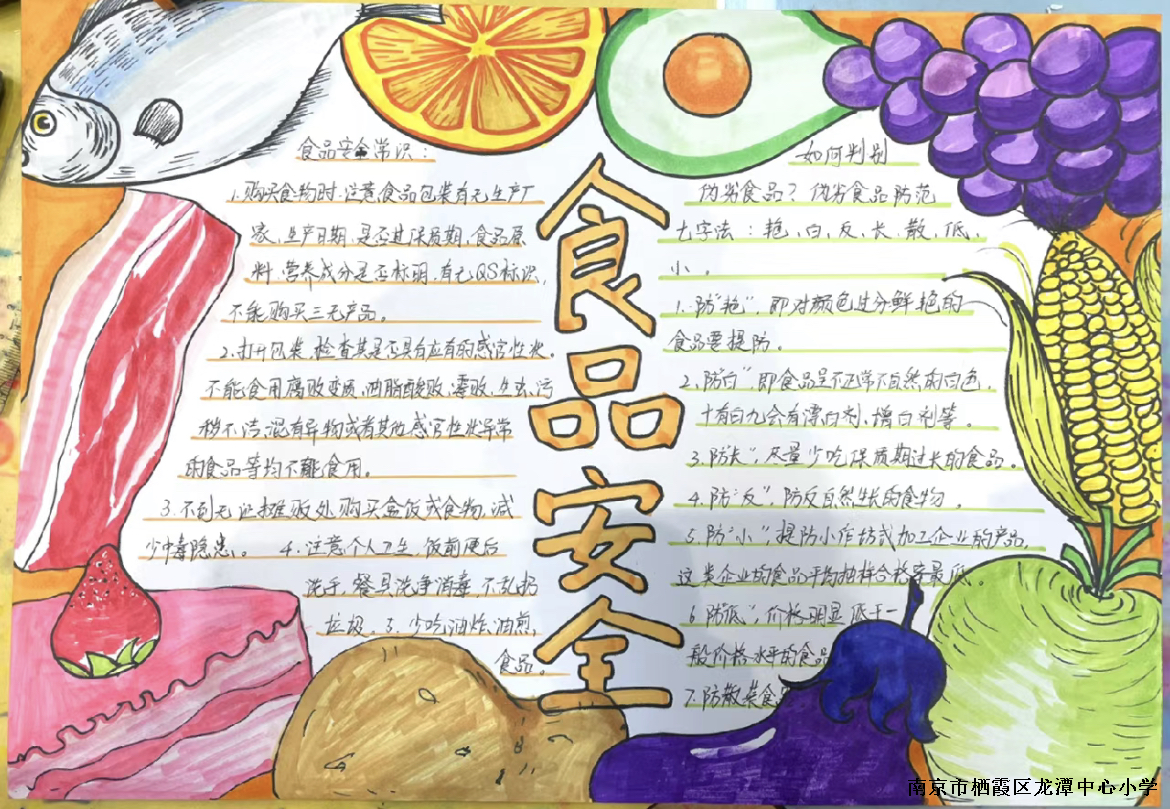 食品安全
食品安全常识：
1.购买食物时.注意食品包装有无生产厂
家.生产日期.是否过保质期.食品原
料.营养成分是否标明.有无QS标识,
不能购买三无产品。
2.打开包装.检查其是否具有应有的感官性状.
不能食用腐败变质,油脂酸败.霉败.生虫.污
秽不洁.混有异物或者其他感官性状异常
的食品等均不能食用。
3.不到无证摊贩处购买盒饭或食物,减
少中毒隐患。 4.注意个人卫生,饭前便后
洗手,餐具洗净消毒,不乱扔
垃圾。3.少吃油炸.油煎,
食品。
如何判别
伪劣食品？伪劣食品防范
七字法：艳、白、反、长、散、低、
小。
1.防“艳”.即对颜色过分鲜艳的
食品要提防。
2.防白“即食品呈不正常不自然的白色.
十有白九会有漂白剂,增白剂等。
3.防长”,尽量少吃保质期过长的食品。
4.防“反”,防反自然生长的食物。
5.防“小”,提防小作坊或加工企业的产品,
这类企业的食品平均抽样合格率最低。
6.防低”,价格明显低于一
般价格水平的食品
7.防散装食品
南京市栖霞区龙潭中心小学